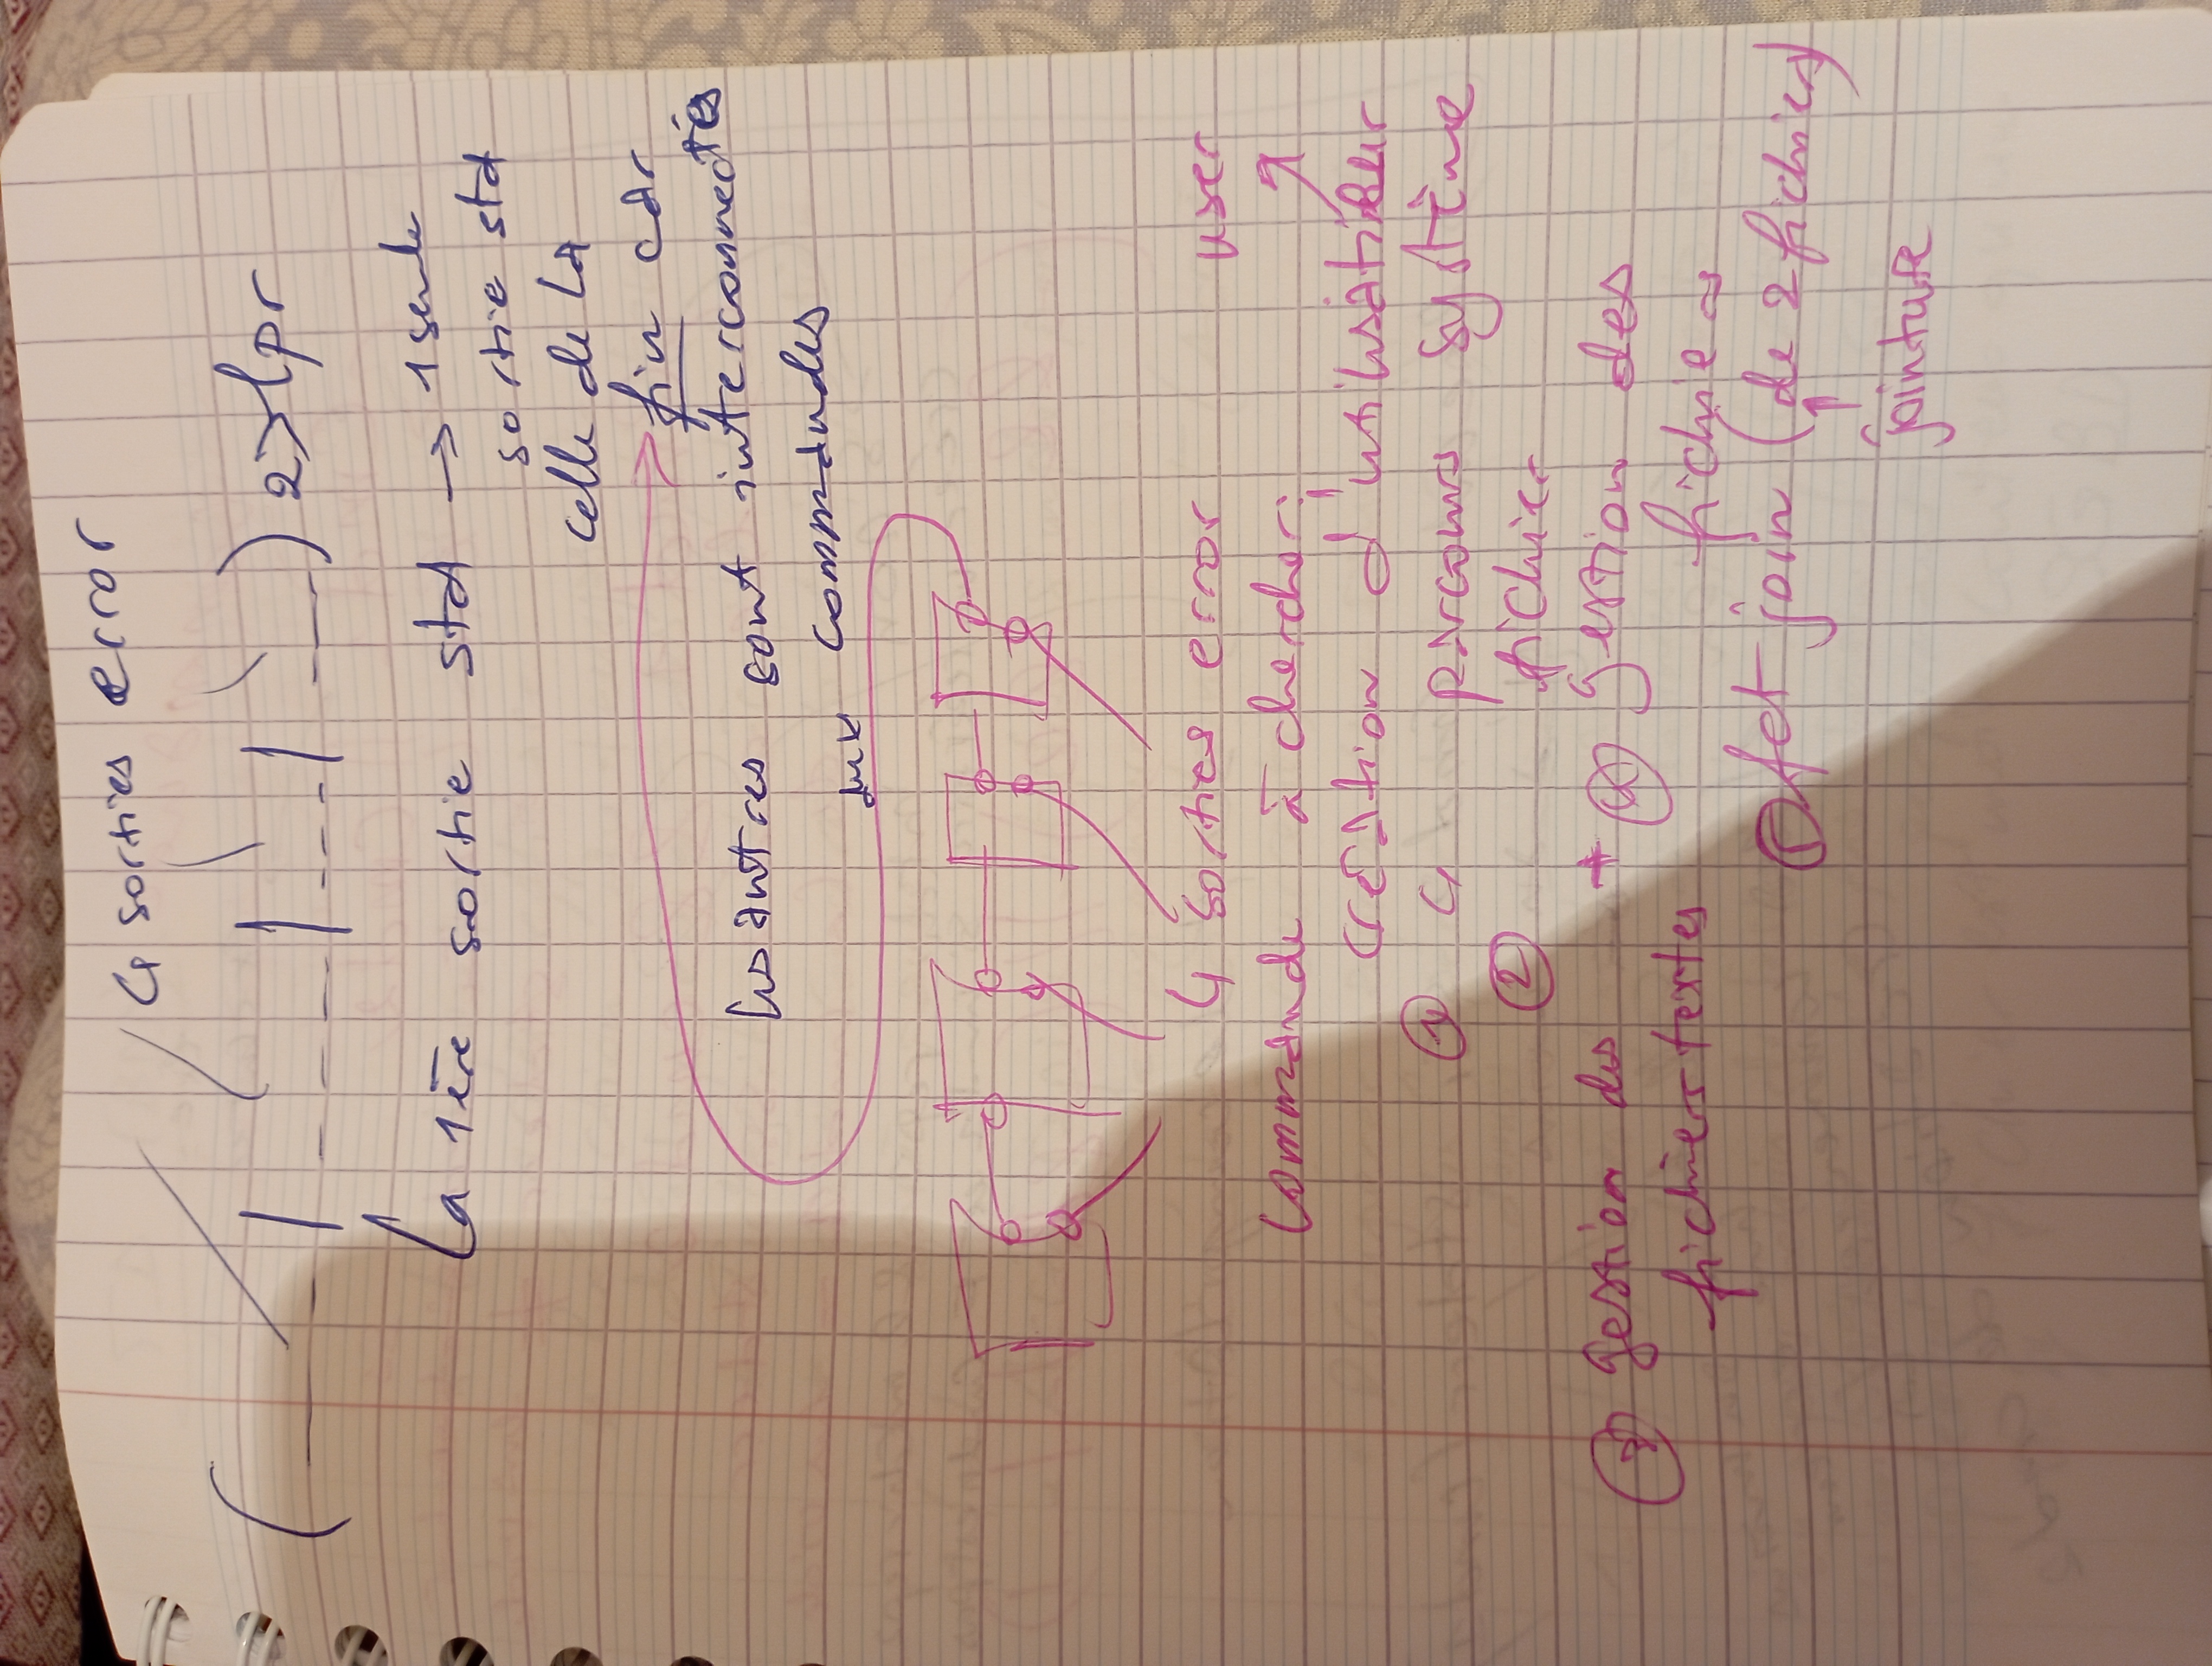 4 sorties error
( ___ | _ _ _ _ | _ _ _ | ___ ) 2>lpr
la 1ère sortie std → 1 seule
sortie std
celle de la
fin car
les autres sont interconnectés
aux commandes
4 sorties error user
Commande à chercher:
création d'utilisateur
① " parcours système
② fichier
③ gestion des + ④ gestion des
fichiers textes fichie
et join (de 2 fichiers)
jointure